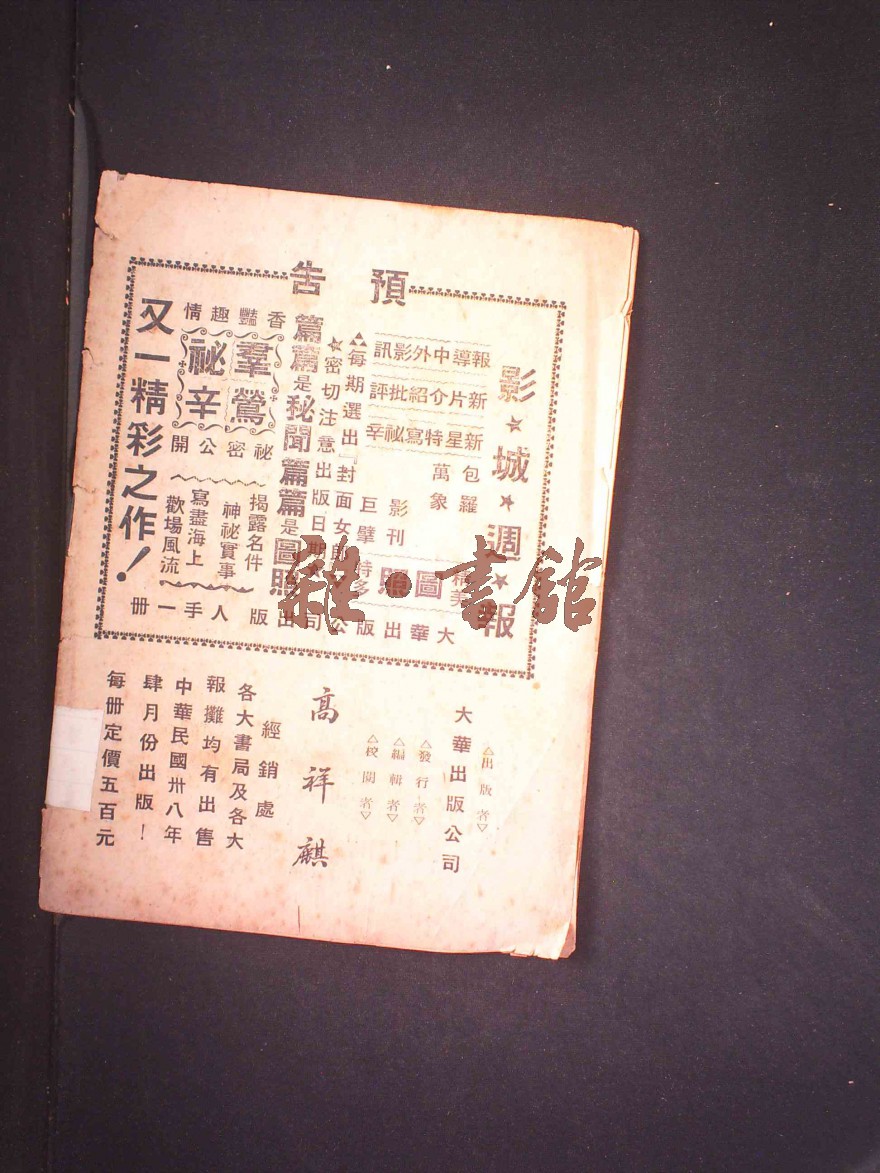 預告
影★城★週★報
報導中外影訊
新片介紹批評
新星特寫祕辛
包羅
萬象
影刊
巨擘
精美
圖照
特多
大華出版公司出版
▲每期選出「封面女郎」
★密切注意出版日期★
篇篇是秘聞篇篇是圖照
香豔趣情
羣鶯
祕辛
祕密公開
揭露名件
神祕實事
寫盡海上
歡場風流
人手一册
又一精彩之作！
△出版者▽
大華出版公司
△發行者▽
△編輯者▽
△校閱者▽
高祥麒
經銷處
各大書局及各大
報攤均有出售
中華民國卅八年
肆月份出版！
每册定價五百元
雜·書館